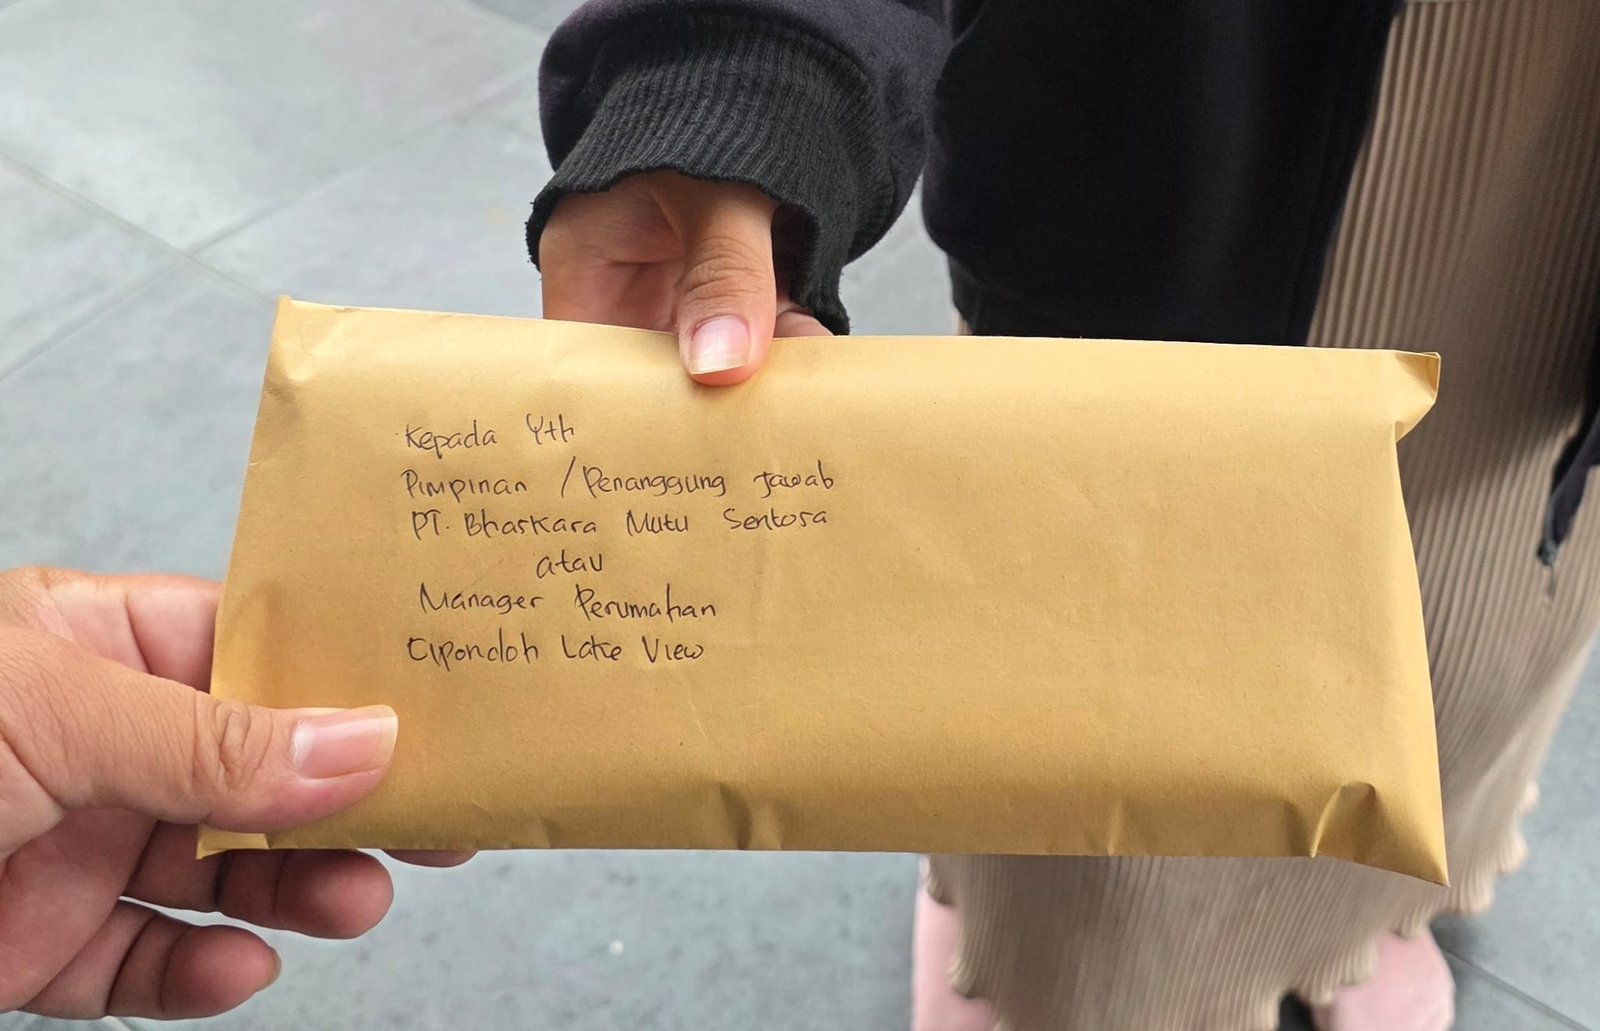 Kepada Yth
Pimpinan / Penanggung Jawab
PT. Bharkara Mutu Sentosa
atau
Manager Perumahan
Cipondoh Lake View